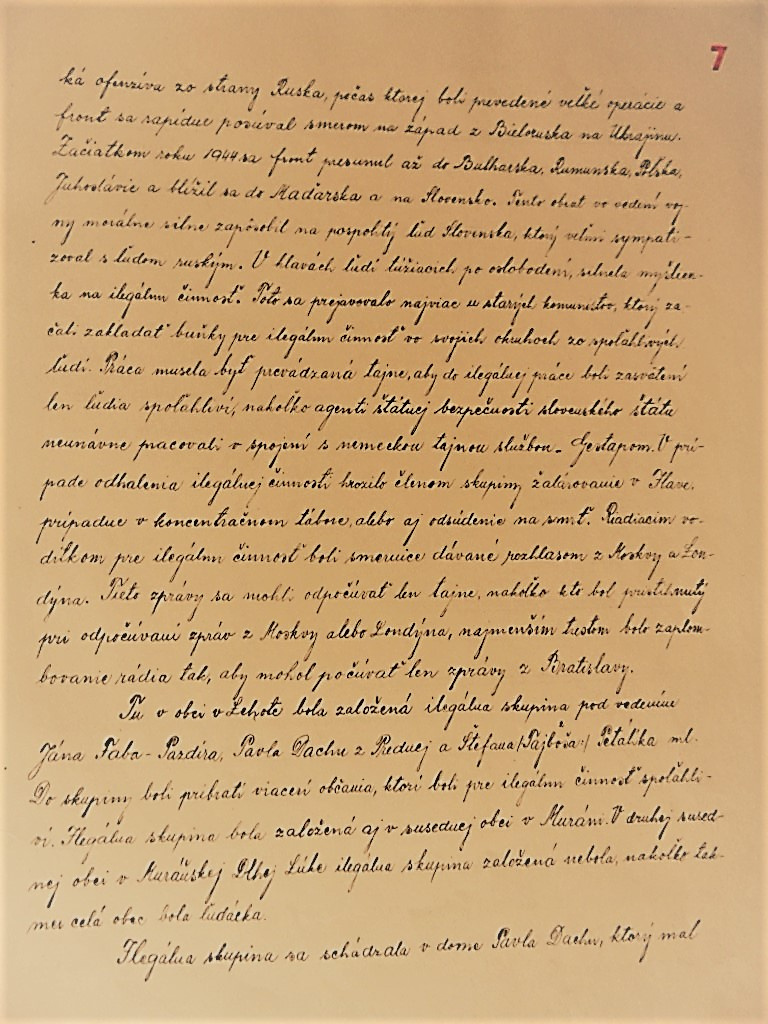 7
ká ofenzíva zo strany Ruska, počas ktorej boli prevedené veľké operácie a
front sa rapídne posúval smerom na západ z Bieloruska na Ukrajinu.
Začiatkom roku 1944 sa front presunul až do Bulharska, Rumunska, Poľska,
Juhoslávie a blížil sa do Maďarska a na Slovensko. Tento obrat vo vedení voj-
ny morálne silne zapôsobil na pospolitý ľud Slovenska, ktorý veľmi sympati-
zoval s ľudom ruským. V hlavách ľudí túžiacich po oslobodení, silnela myšlien-
ka na ilegálnu činnosť. Toto sa prejavovalo najviac u starých komunistov, ktorý za-
čali zakladať buňky pre ilegálnu činnosť vo svojich okruhoch zo spoľahlivých
ľudí. Práca musela byť prevádzaná tajne, aby do ilegálnej práce boli zasvätení
len ľudia spoľahliví, nakoľko agenti štátnej bezpečnosti slovenského štátu
neunávne pracovali v spojení s nemeckou tajnou službou - Gestapom. V prí-
pade odhalenia ilegálnej činnosti hrozilo členom skupiny žalárovanie v Ilave,
prípadne v koncentračnom tábore, alebo aj odsúdenie na smrť. Riadiacim vo-
dítkom pre ilegálnu činnosť boli smernice dávané rozhlasom z Moskvy a Lon-
dýna. Tieto zprávy sa mohli odpočúvať len tajne, nakoľko kto bol pristihnutý
pri odpočúvaní zpráv z Moskvy alebo Londýna, najmenším trestom bolo zaplom-
bovanie rádia tak, aby mohol počúvať len zprávy z Bratislavy.
Tu v obci v Lehote bola založená ilegálna skupina pod vedením
Jána Faba - Pazdíra, Pavla Dachu z Prednej a Štefana /Pajbôša:/ Petálika ml.
Do skupiny boli pribratí viacerí občania, ktorí boli pre ilegálnu činnosť spoľahli-
ví. Ilegálna skupina bola založená aj v susednej obci v Muráni. V druhej sused-
nej obci v Muráňskej Dlhej Lúke ilegálna skupina založená nebola, nakoľko tak-
mer celá obec bola ľudácka.
Ilegálna skupina sa schádzala v dome Pavla Dachu, ktorý mal